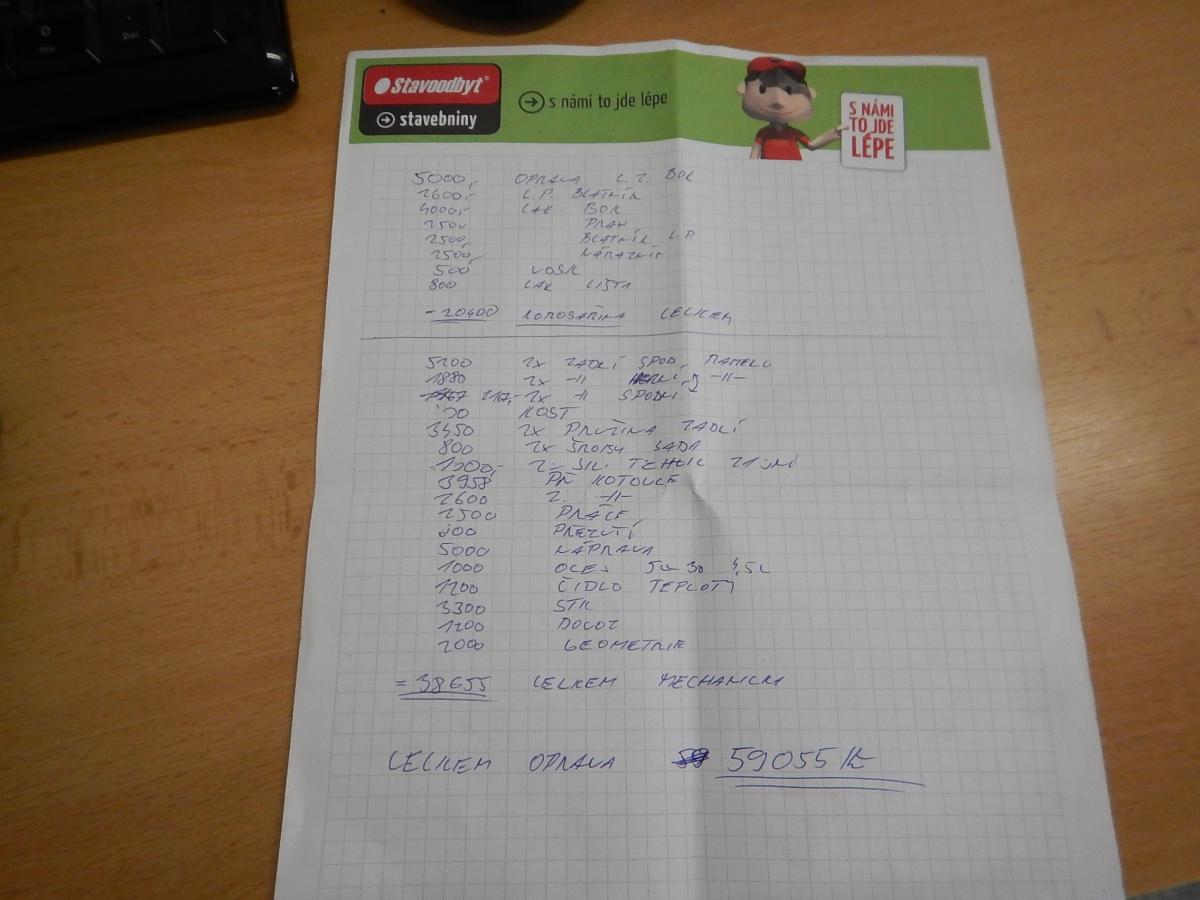 Stavoodbyt®
stavebniny
s námi to jde lépe
S NÁMI
TO JDE
LÉPE
5000,- OPRAVA L.Z. BOK
2600,- L.P. BLATNÍK
4000,- LAK BOK
2500 PRAH
2500,- BLATNÍK L.P.
2500,- NÁRAZNÍK
500 VOSK
800 LAK LIŠTA
= 20400 KOROSAŘINA CELKEM
5200 2x ZADNÍ SPOD. RAMENO
1880 2x -II- HORNÍ -II-
2x -II- SPODNÍ
KOST
3450 2x PRUŽINA ZADNÍ
800 2x ŠROUBY SADA
1200,- 2x SIL.
3958 PŘ KOTOUČE
2600 Z. -II-
2500 PRÁCE
PŘEZUTÍ
5000 NÁPRAVA
1000 OLEJ 5W 30 4,5L
1200 ČIDLO TEPLOTY
3300 STK
1200 DOVOZ
2000 GEOMETRIE
= 38655 CELKEM MECHANIKA
CELKEM OPRAVA 59055 Kč